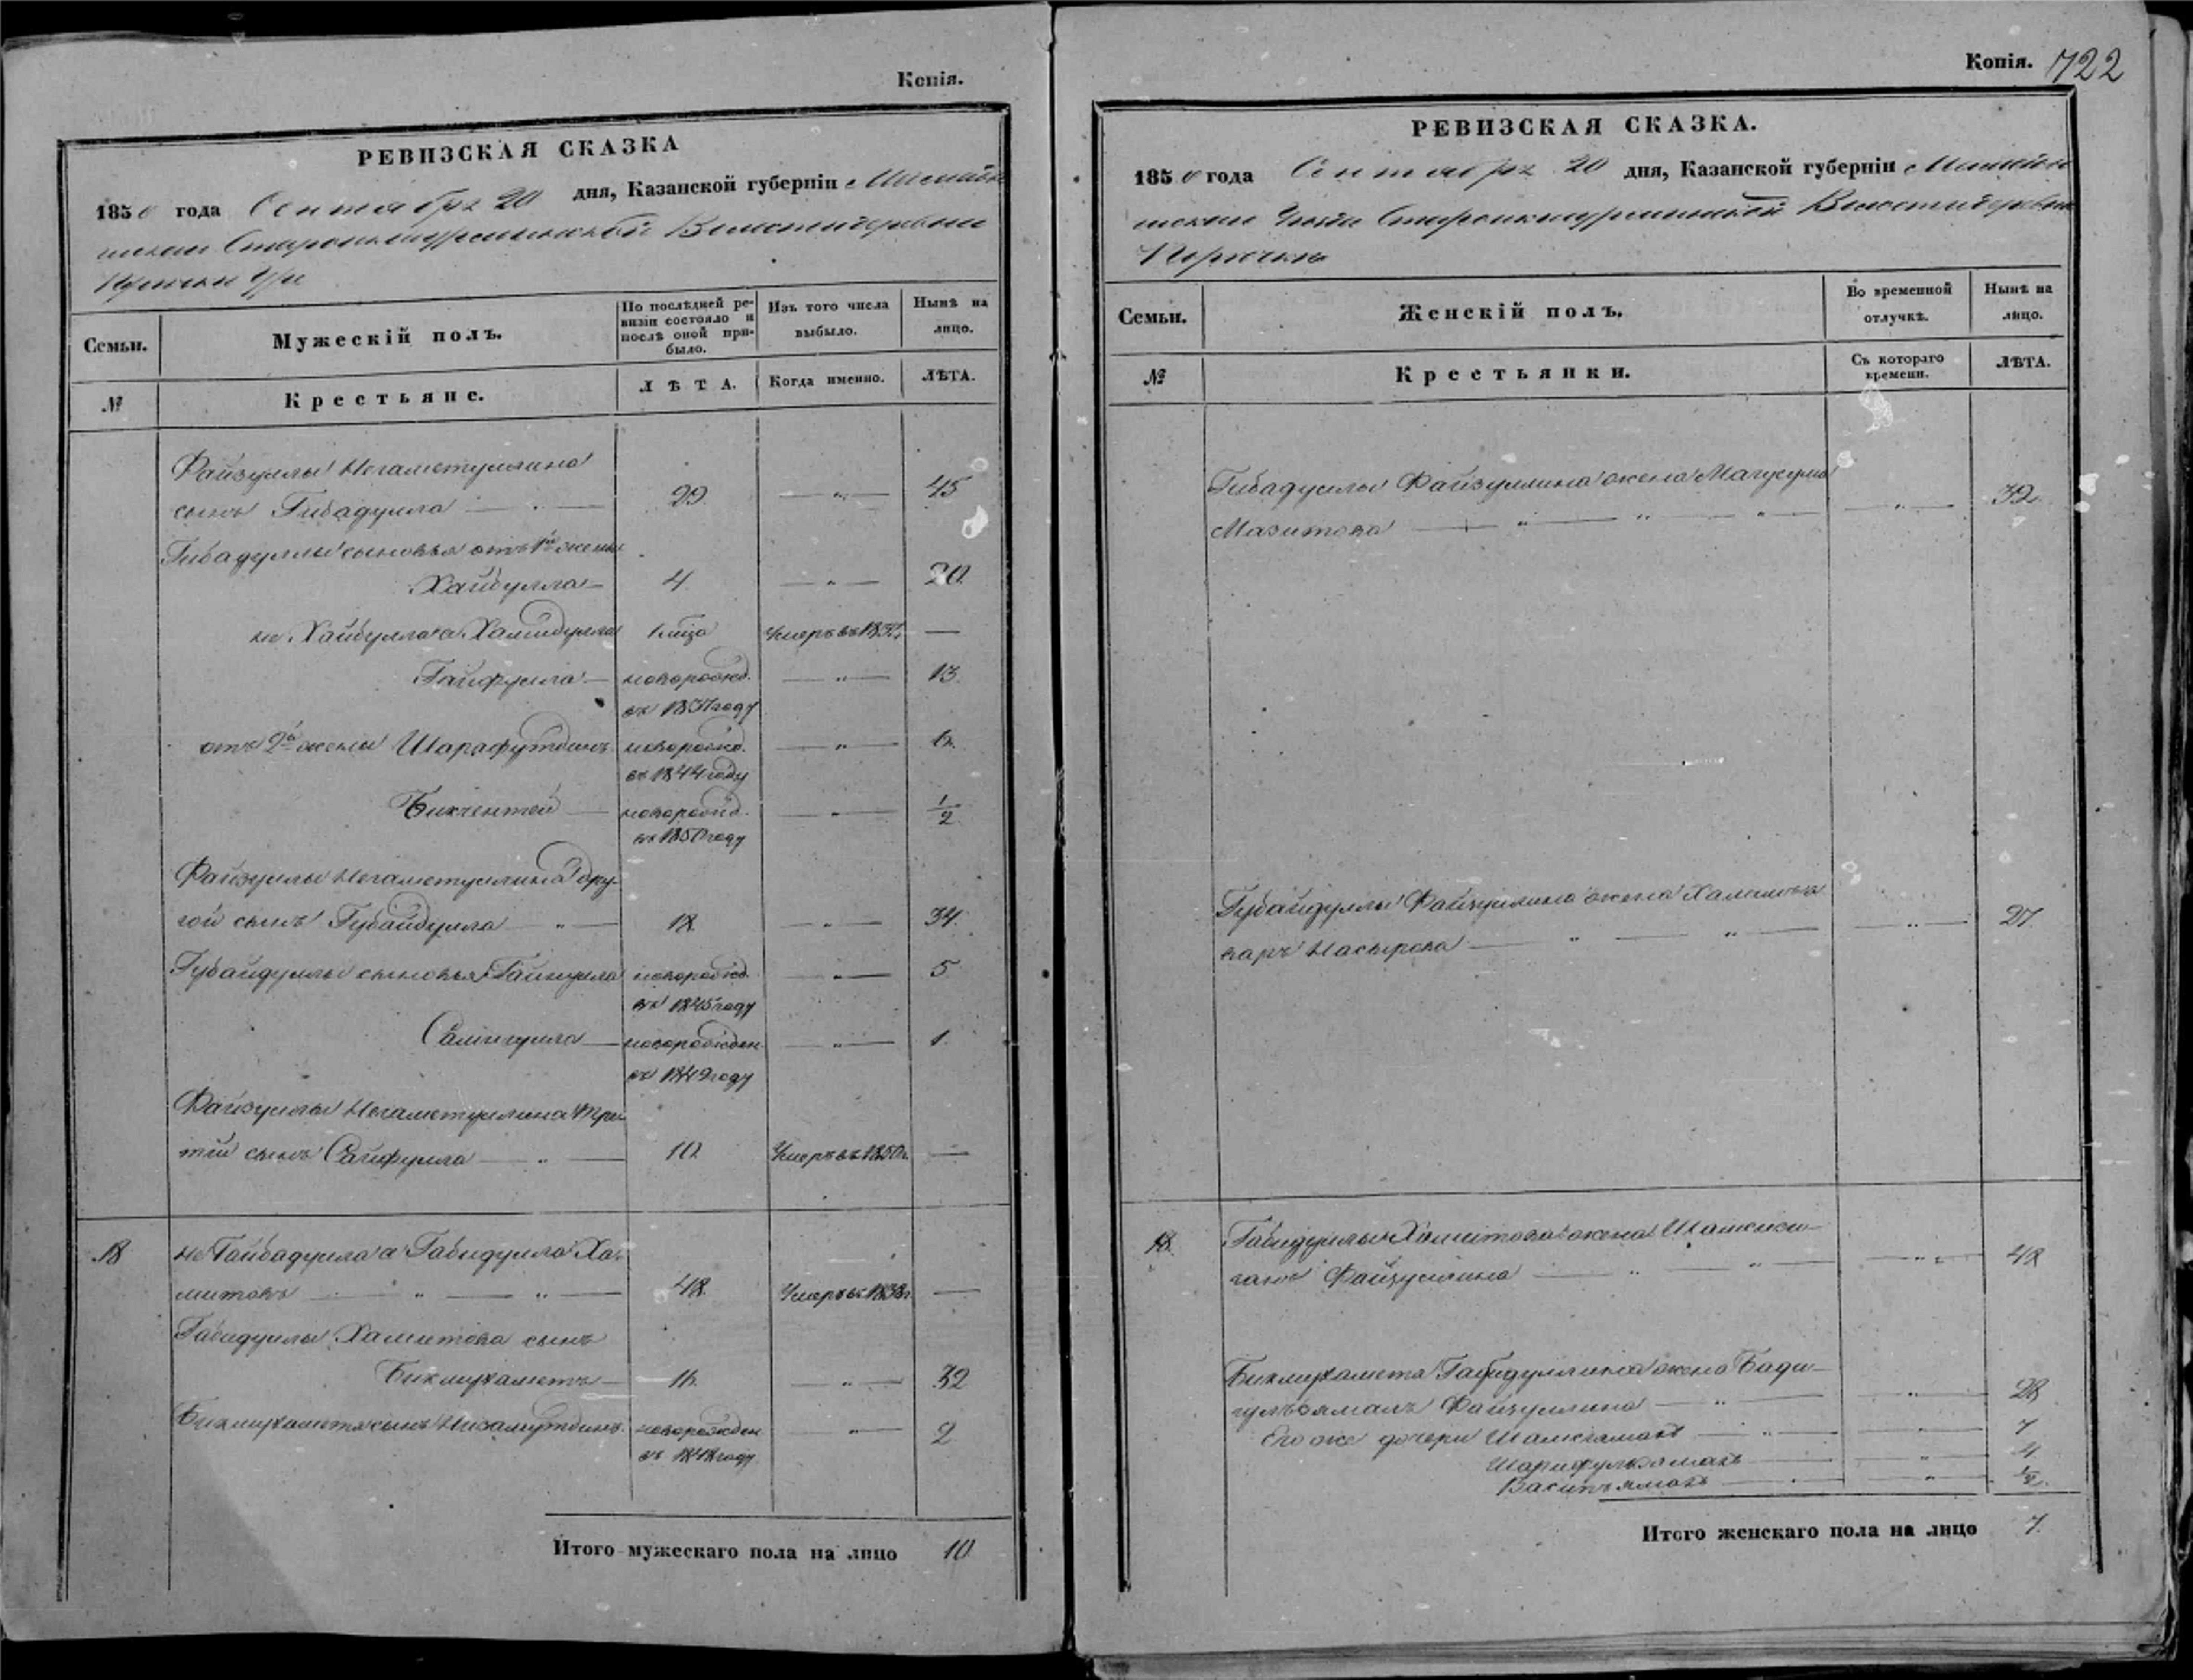 Копія.
РЕВИЗСКАЯ СКАЗКА
1850 года Сентября 20 дня, Казанской губерніи
Волости деревни
Семьи.
Мужескій полъ.
По послѣдней ре-
визіи состояло и
послѣ оной при-
было.
Изъ того числа
выбыло.
Нынѣ на
лицо.
№
Крестьяне.
ЛѢТА.
Когда именно.
ЛѢТА.
Файзуллы Негаметуллина
сынъ Гибадулла 29 — „ — 45
Гибадуллы сыновья отъ 1й жены
Хайбулла 4 — „ — 20
не Хайбулла а Хамидулла Умеръ въ —
Гайфулла новорожд. — „ — 13
въ 1837 году
отъ 2й жены Шарафутдинъ новорожд. — „ — 6
въ 1844 году
Бикчентей новорожд. — „ — 1/2
въ 1850 году
Файзуллы Негаметуллина дру-
гой сынъ Губайдулла — „ — 18 — „ — 34
Губайдуллы сыновья Гайнулла новорожд. — „ — 5
въ 1845 году
Самигулла новорожден. — „ — 1
въ 1849 году
Файзуллы Негаметуллина тре-
тій сынъ Сайфулла — „ — 10 Умеръ въ 1850 г. —
18 не Гайбадулла а Габидулла Ха-
митовъ — „ — „ — 48 Умеръ въ 1838 г. —
Габидуллы Хамитова сынъ
Бикмухаметъ 16 — „ — 32
Бикмухаметя сынъ Низамутдинъ новорожден. — „ — 2
въ 1848 году
Итого мужескаго пола на лицо 10
Копія. 722
РЕВИЗСКАЯ СКАЗКА.
1850 года Сентября 20 дня, Казанской губерніи
Волости деревни
Семьи.
Женскій полъ.
Во временной
отлучкѣ.
Нынѣ на
лицо.
№
Крестьянки.
Съ котораго
времени.
ЛѢТА.
Гибадуллы Файзуллина жена
Мазитова — „ — „ — „ — — „ — 32
Губайдуллы Файзуллина жена
Насырова — „ — „ — — „ — 27
18 Габидуллы Хамитова жена
Файзуллина — „ — „ — — „ — 48
Бикмухаметя Габидуллина жена Бади-
гульзямалъ Файзуллина — „ — — „ — 28
Его же дочери — „ — — „ — 7
— „ — 4
— „ — 1/2
Итого женскаго пола на лицо 7